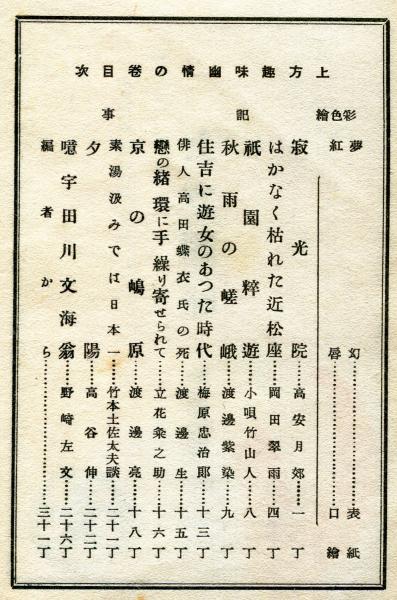 上方趣味幽情の卷目次
彩色繪
夢幻……表紙
紅唇……口繪
記事
寂光院……高安月郊……一丁
はかなく枯れた近松座……岡田翠雨……四丁
祇園粹遊……小唄竹山人……八丁
秋雨の嵯峨……渡邊紫染……九丁
住吉に遊女のあつた時代……梅原忠治郎……十三丁
俳人高田蝶衣氏の死……渡邊生……十五丁
戀の緒環に手繰り寄せられて……立花粂之助……十六丁
京の嶋原……渡邊亮……十八丁
素湯汲みでは日本一……竹本土佐太夫談……二十一丁
夕陽……高谷伸……二十二丁
噫宇田川文海翁……野崎左文……二十六丁
編者から……三十一丁